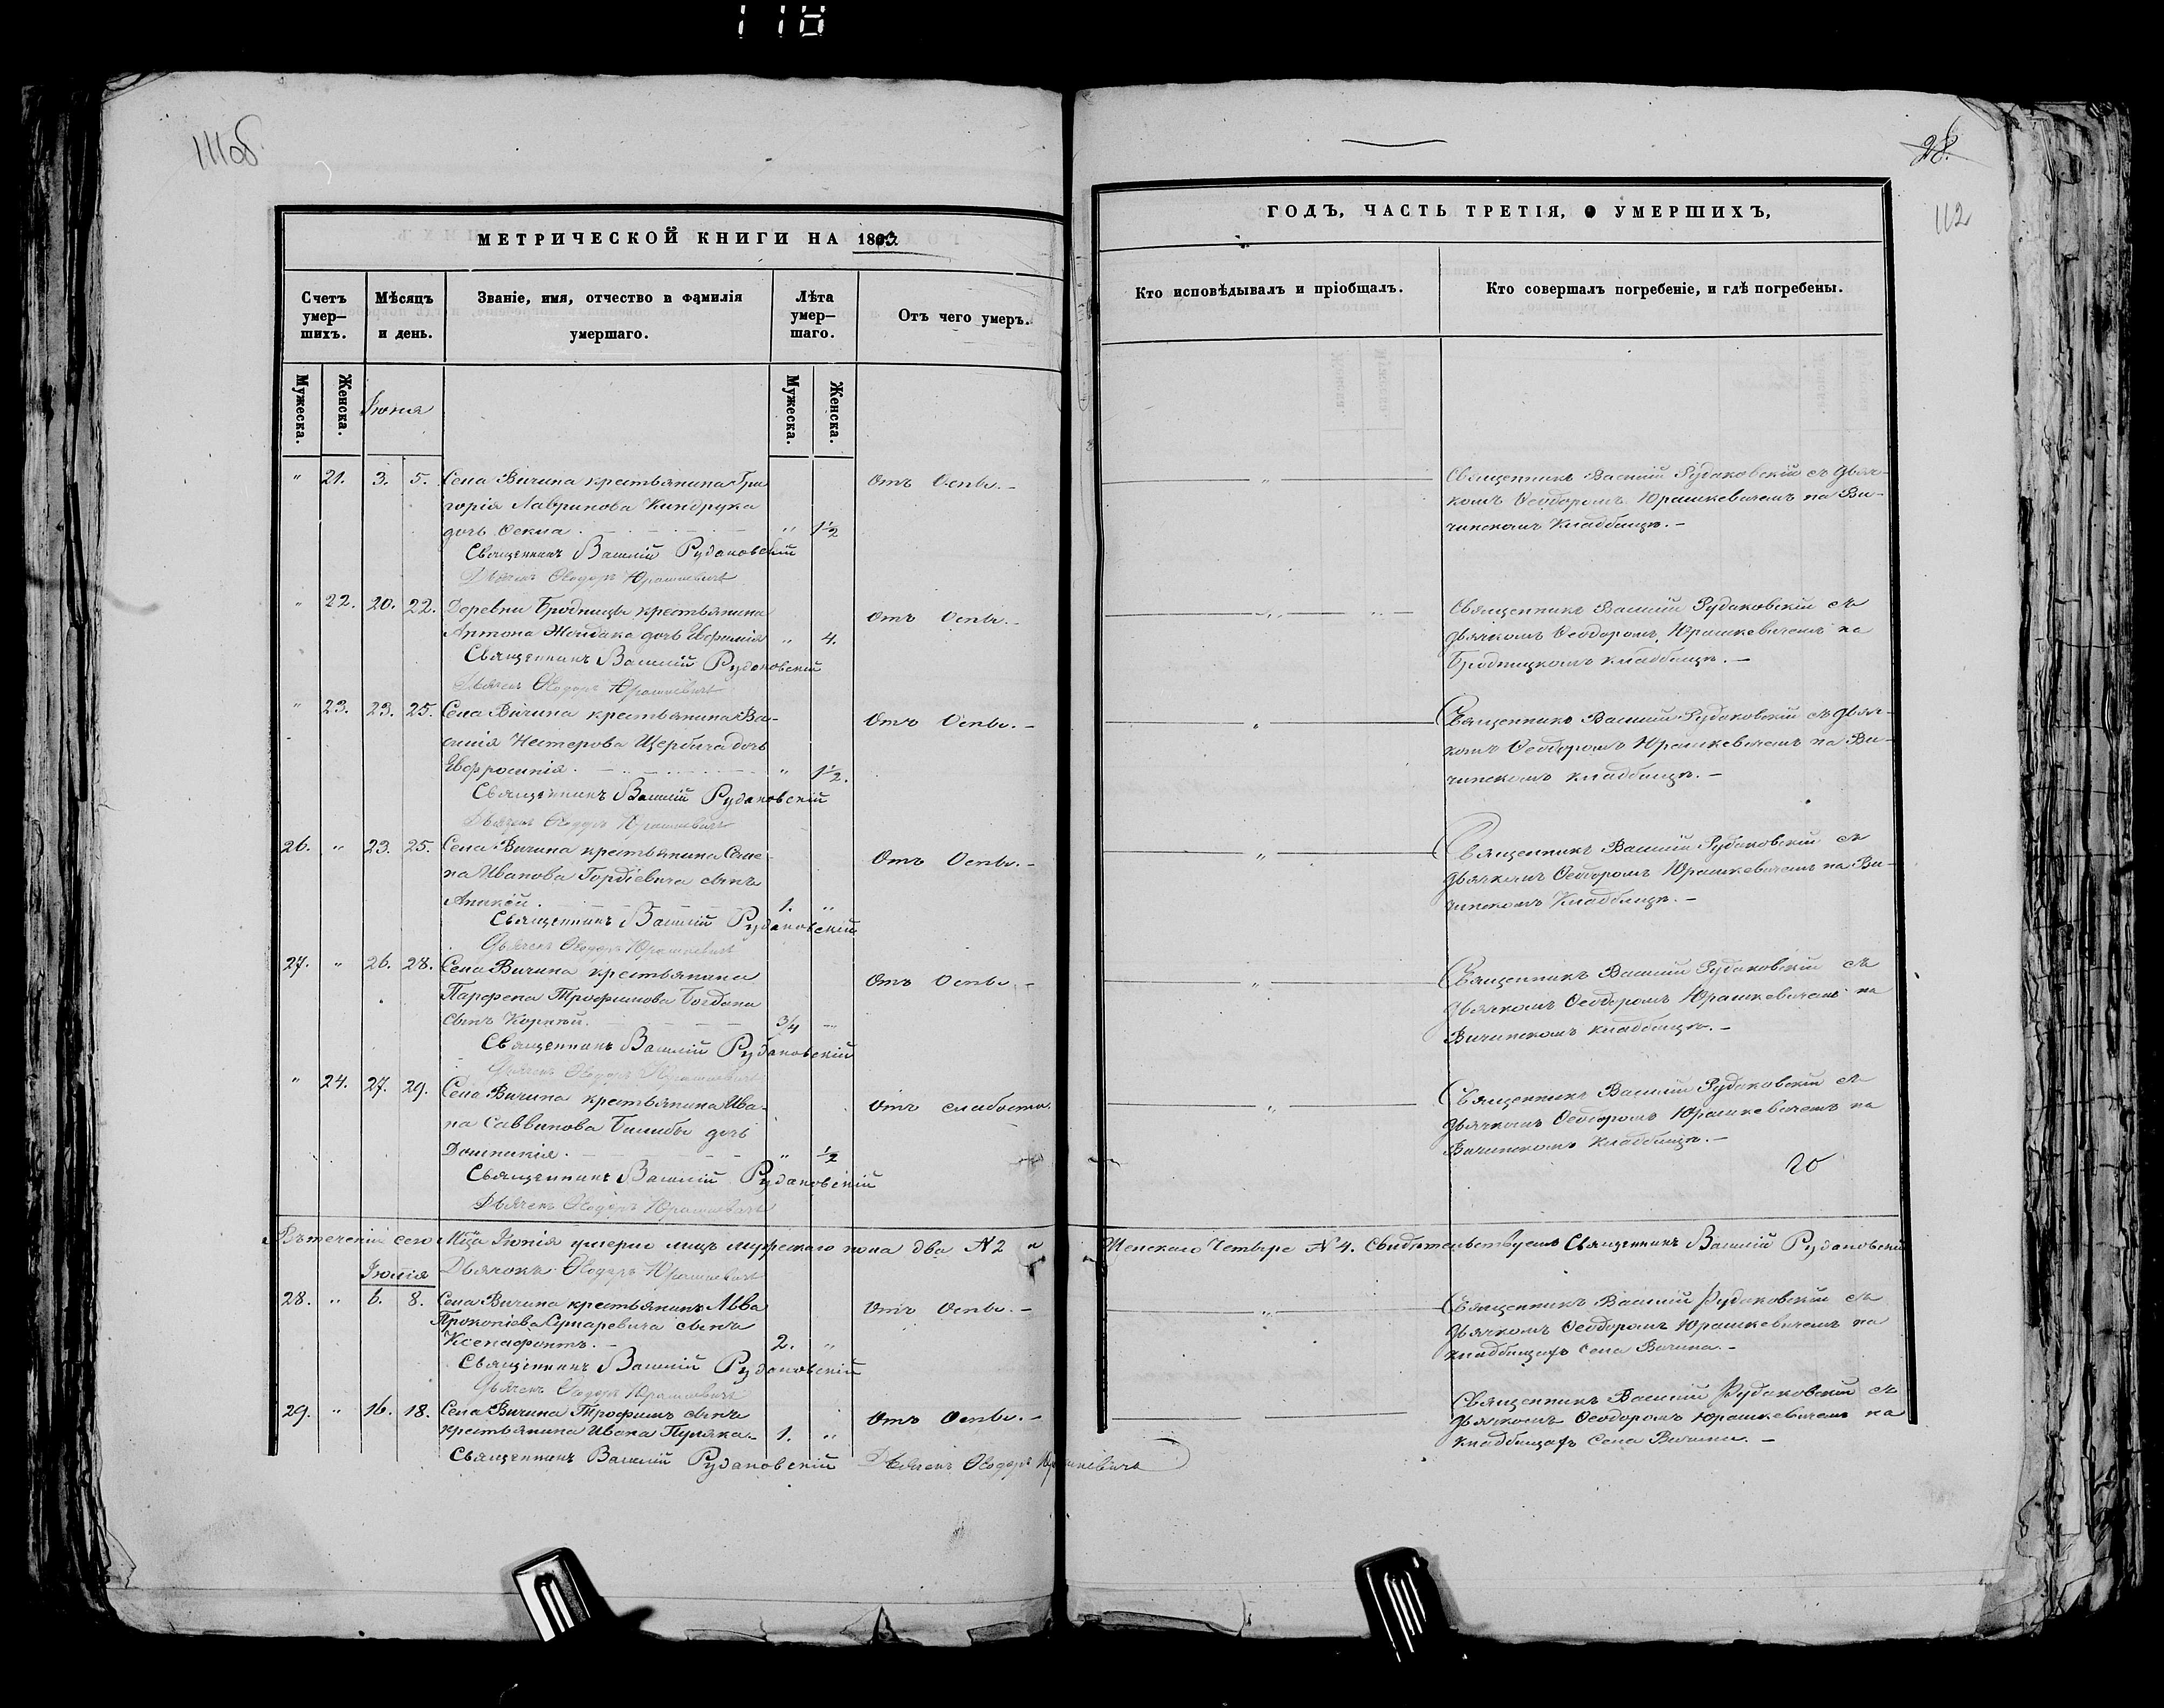 118
111об
МЕТРИЧЕСКОЙ КНИГИ НА 1863.
Счетъ умер-шихъ.
Мѣсяцъ и день.
Званіе, имя, отчество и фамилія умершаго.
Лѣта умер-шаго.
Отъ чего умеръ.
Мужеска.
Женска.
Іюня
Мужеска.
Женска.
" 21. 3. 5. Села Вичина крестьянина Гри
горія Лавринова Киндрука
дочь Фекла. " 1½
Отъ Оспы. –
Священникъ Василій Рудаковскій
Дьячекъ Ѳеодоръ Юрашкевичъ
" 22. 20. 22. Деревни Бродницы крестьянина
Антона дочь Евфимія " 4.
Отъ Оспы. –
Священникъ Василій Рудаковскій
Дьячекъ Ѳеодоръ Юрашкевичъ
" 23. 23. 25. Села Вичина крестьянина Ва-
силія Нестерова Щербича дочь
Евфросинія. " 1½.
Отъ Оспы. –
Священникъ Василій Рудаковскій
Дьячекъ Ѳеодоръ Юрашкевичъ
26. " 23. 25. Села Вичина крестьянина Семе-
на Иванова Гордіевича сынъ
1. "
Отъ Оспы. –
Священникъ Василій Рудаковскій
Дьячекъ Ѳеодоръ Юрашкевичъ
27. " 26. 28. Села Вичина крестьянина
Парфена Трофимова Богдана
сынъ Корнѣй. ¾ "
Отъ Оспы. –
Священникъ Василій Рудаковскій
Дьячекъ Ѳеодоръ Юрашкевичъ
" 24. 27. 29. Села Вичина крестьянина Ива-
на Саввинова дочь
Домникія. " ½
Отъ слабости.
Священникъ Василій Рудаковскій
Дьячекъ Ѳеодоръ Юрашкевичъ
Въ теченіи сего Мца Іюнія умерло лицъ мужескаго пола два N 2 и
Дьячокъ Ѳеодоръ Юрашкевичъ
Іюлія
28. " 6. 8. Села Вичина крестьянина Льва
Прокопіева сынъ
Ксенофонтъ. – 2. "
Отъ Оспы. –
Священникъ Василій Рудаковскій
Дьячекъ Ѳеодоръ Юрашкевичъ
29. " 16. 18. Села Вичина Трофимъ сынъ
крестьянина Ивана 1. "
Отъ Оспы. –
Священникъ Василій Рудаковскій Дьячекъ Ѳеодоръ Юрашкевичъ
28.
112
ГОДЪ, ЧАСТЬ ТРЕТІЯ, О УМЕРШИХЪ,
Кто исповѣдывалъ и пріобщалъ.
Кто совершалъ погребеніе, и гдѣ погребены.
Священникъ Василій Рудаковскій съ дьяч-
комъ Ѳеодоромъ Юрашкевичемъ на Ви-
чинскомъ Кладбищѣ. –
Священникъ Василій Рудаковскій съ
дьячкомъ Ѳеодоромъ Юрашкевичемъ на
Бродницкомъ кладбищѣ. –
Священникъ Василій Рудаковскій съ дьяч-
комъ Ѳеодоромъ Юрашкевичемъ на Ви-
чинскомъ кладбищѣ. –
Священникъ Василій Рудаковскій съ
дьячкомъ Ѳеодоромъ Юрашкевичемъ на Ви-
чинскомъ Кладбищѣ. –
Священникъ Василій Рудаковскій съ
дьячкомъ Ѳеодоромъ Юрашкевичемъ на
Вичинскомъ кладбищѣ. –
Священникъ Василій Рудаковскій съ
дьячкомъ Ѳеодоромъ Юрашкевичемъ на
Вичинскомъ Кладбищѣ. –
20
Женскаго Четыре N 4. Свидѣтельствуемъ Священникъ Василій Рудаковскій
Священникъ Василій Рудаковскій съ
дьячкомъ Ѳеодоромъ Юрашкевичемъ на
кладбищахъ Села Вичина. –
Священникъ Василій Рудаковскій съ
дьячкомъ Ѳеодоромъ Юрашкевичемъ на
кладбищахъ Села Вичина. –